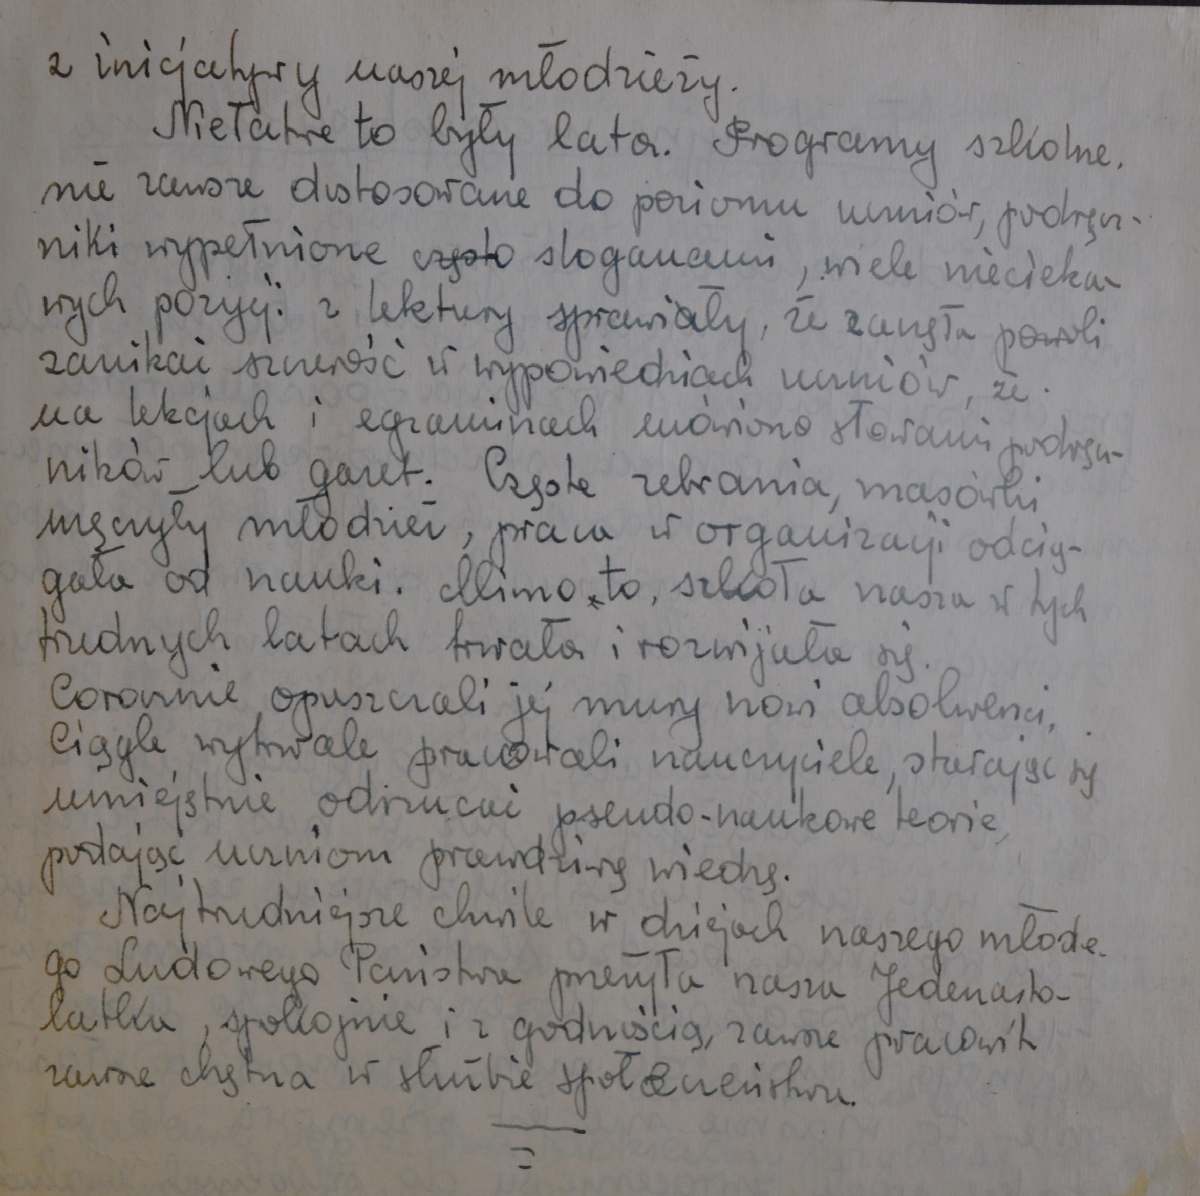 z inicjatywy naszej młodzieży.
Niełatwe to były lata. Programy szkolne,
nie zawsze dostosowane do poziomu uczniów, podręcz-
niki wypełnione często sloganami, wiele niecieka-
wych pozycji z lektury sprawiały, że zaczęła powoli
zanikać szczerość w wypowiedziach uczniów, że
na lekcjach i egzaminach mówiono słowami podręcz-
ników lub gazet. Częste zebrania, masówki
męczyły młodzież, praca w organizacji odcią-
gała od nauki. Mimo to, szkoła nasza w tych
trudnych latach trwała i rozwijała się.
Corocznie opuszczali jej mury nowi absolwenci,
Ciągle wytrwale pracowali nauczyciele, starając się
umiejętnie odrzucać pseudo-naukowe teorie,
podając uczniom prawdziwą wiedzę.
Najtrudniejsze chwile w dziejach naszego młode-
go Ludowego Państwa przeżyła nasza Jedenasto-
latka, spokojnie i z godnością, zawsze pracowita
zawsze chętna w służbie społeczeństwu.